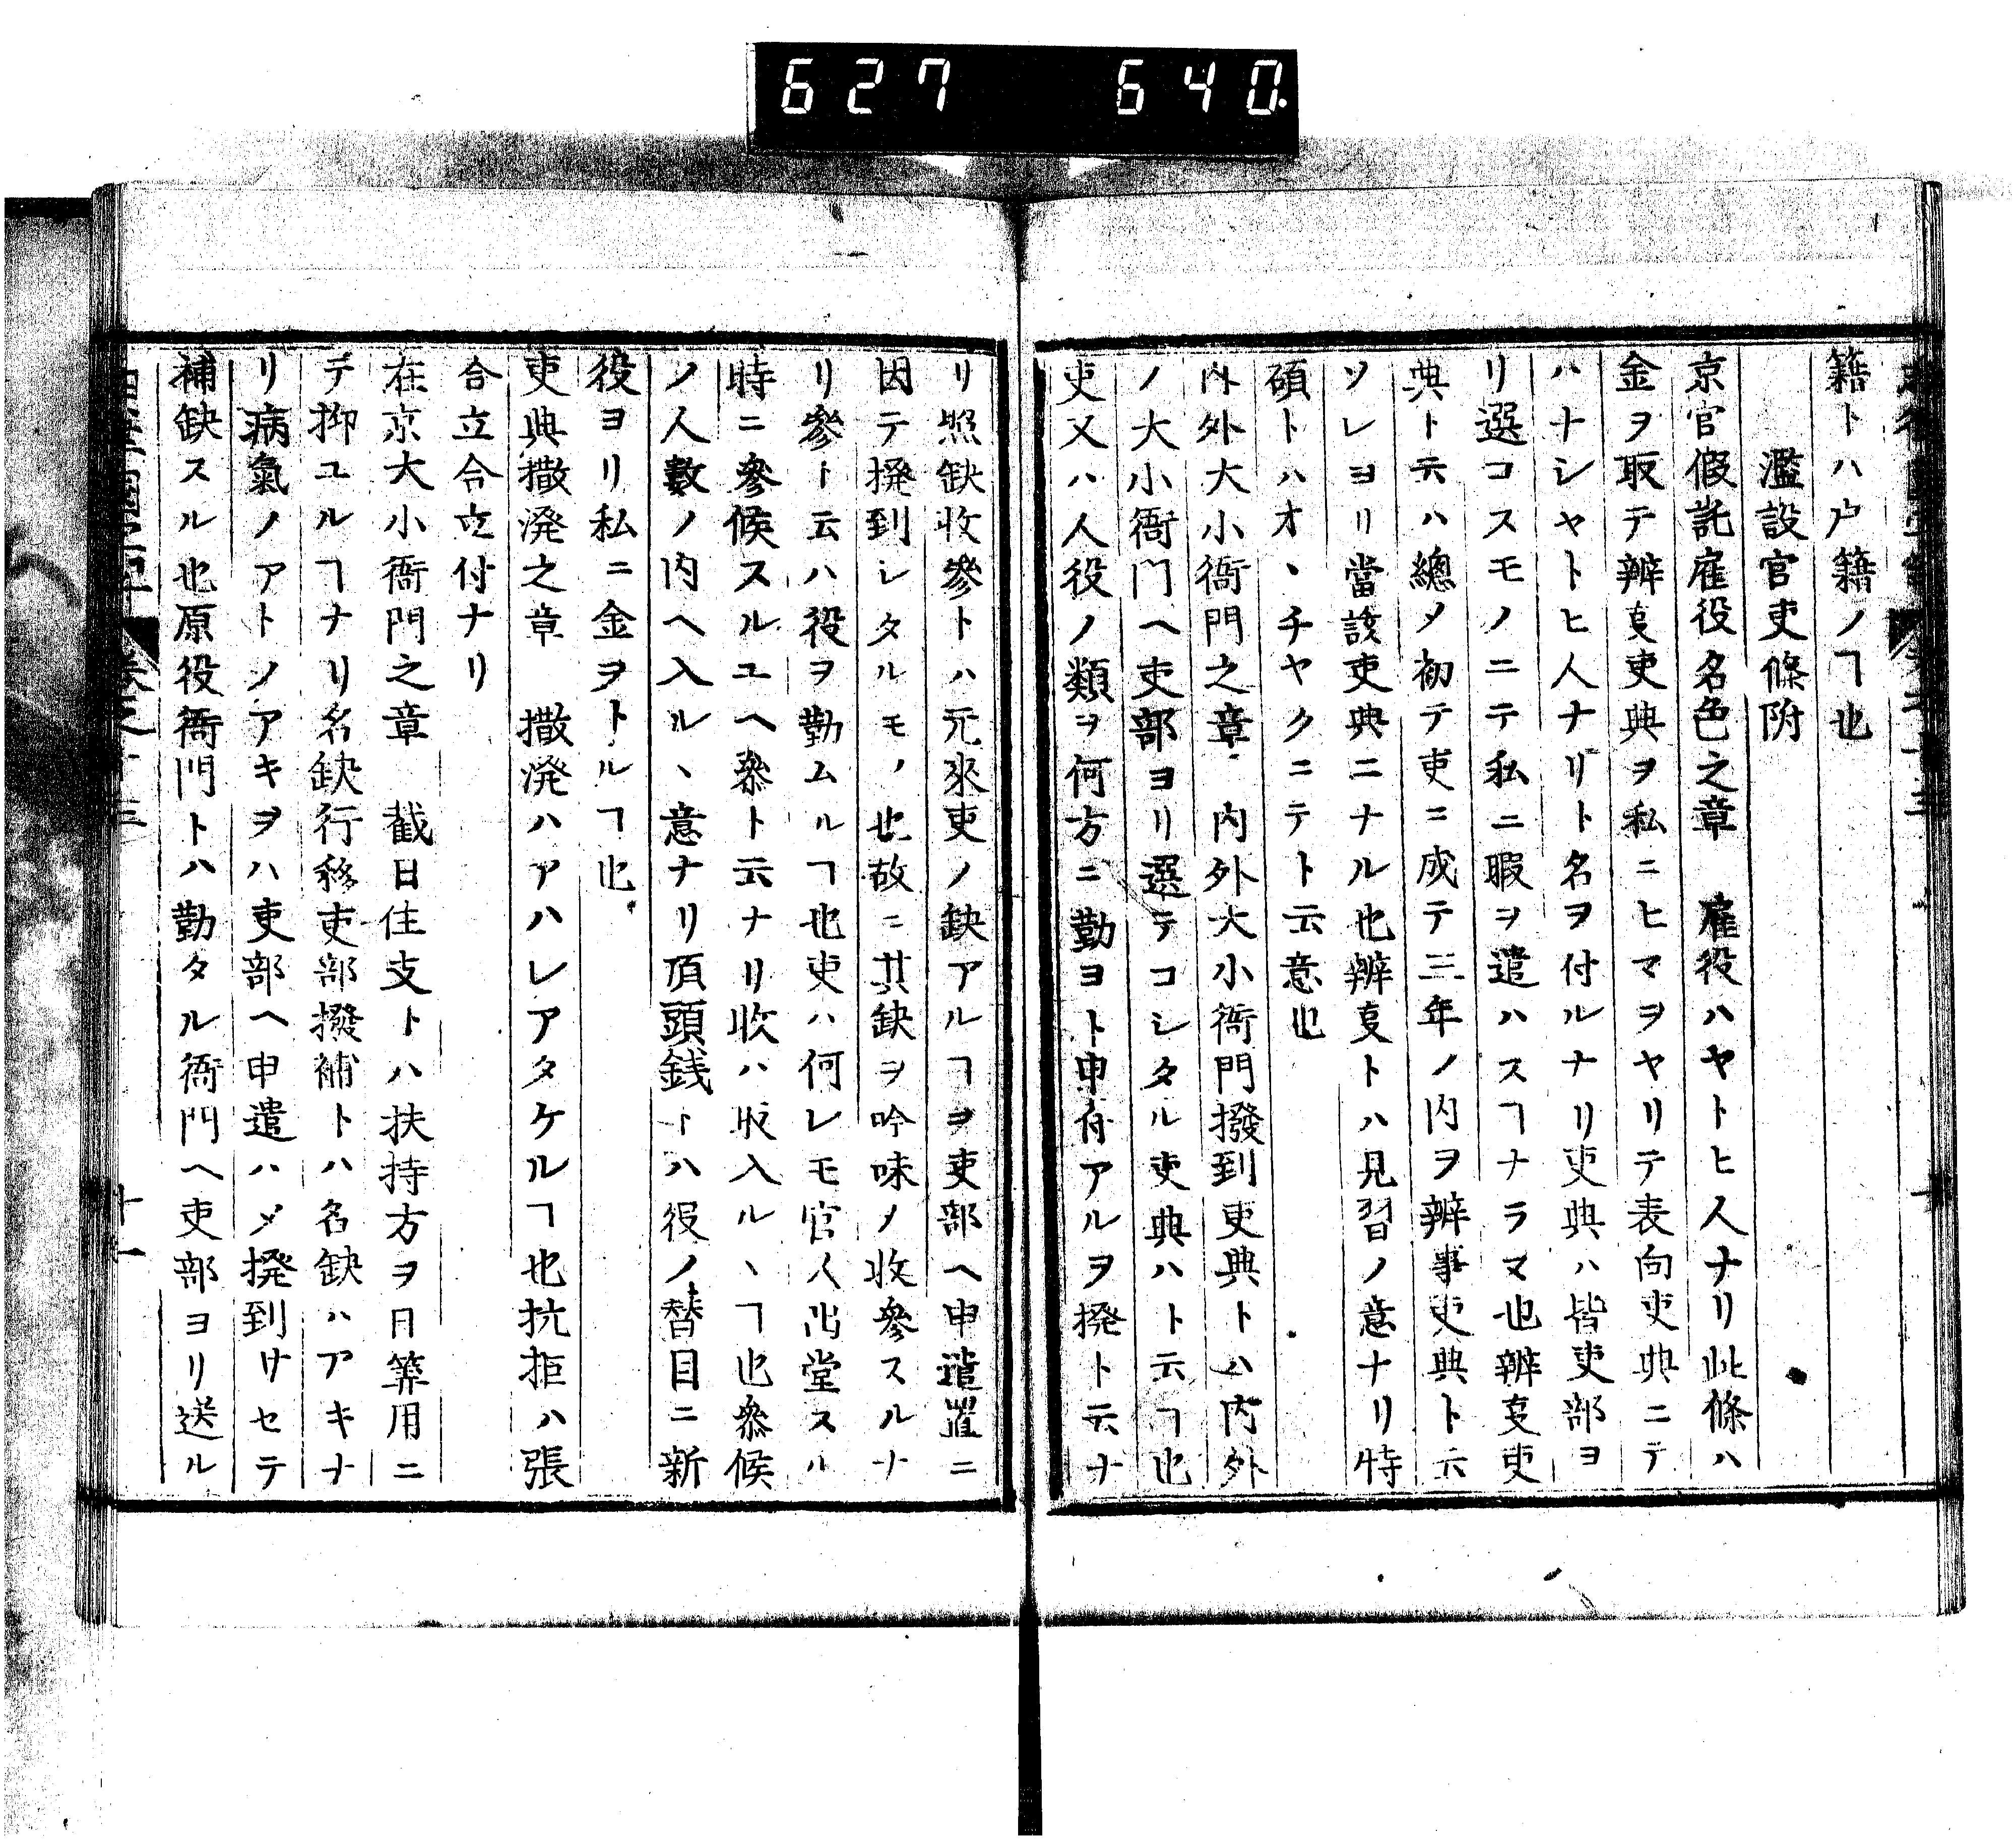 627 640
籍トハ户籍ノヿ也
濫設官吏條附
京官假託雇役名色之章 雇役ハヤトヒ人ナリ此條ハ
金ヲ取テ辨叓吏典ヲ私ニヒマヲヤリテ表向吏典ニテ
ハナシヤトヒ人ナリト名ヲ付ルナリ吏典ハ皆吏部ヨ
リ選コスモノニテ私ニ暇ヲ遣ハスヿナラヌ也辨叓吏
典ト云ハ總メ初テ吏ニ成テ三年ノ内ヲ辨事吏典ト云
ソレヨリ當該吏典ニナル也辨叓トハ見習ノ意ナリ特
碩トハオヽチヤクニテト云意也
内外大小衙門之章 内外大小衙門撥到吏典トハ内外
ノ大小衙門ヘ吏部ヨリ選テコシタル吏典ハト云ヿ也
吏又ハ人役ノ類ヲ何方ニ勤ヨト申付アルヲ撥ト云ナ
リ照缺收參トハ元來吏ノ缺アルヿヲ吏部ヘ申遣置ニ
因テ撥到レタルモノ也故ニ其缺ヲ吟味メ收參スルナ
リ參ト云ハ役ヲ勤ムルヿ也吏ハ何レモ官人出堂スル
時ニ參候スルユヘ叅ト云ナリ收ハ取入ルヽヿ也叅候
ノ人數ノ内ヘ入ルヽ意ナリ頂頭銭トハ役ノ替目ニ新
役ヨリ私ニ金ヲトルヿ也
吏典撒溌之章 撒溌ハアハレアタケルヿ也抗拒ハ張
合立合立付ナリ
在京大小衙門之章 截日住支トハ扶持方ヲ日筭用ニ
テ抑ユルヿナリ名缺行移吏部撥補トハ名缺ハアキナ
リ病氣ノアトノアキヲハ吏部ヘ申遣ハメ撥到サセテ
補缺スル也原役衙門トハ勤タル衙門ヘ吏部ヨリ送ル
卷之十三
十一